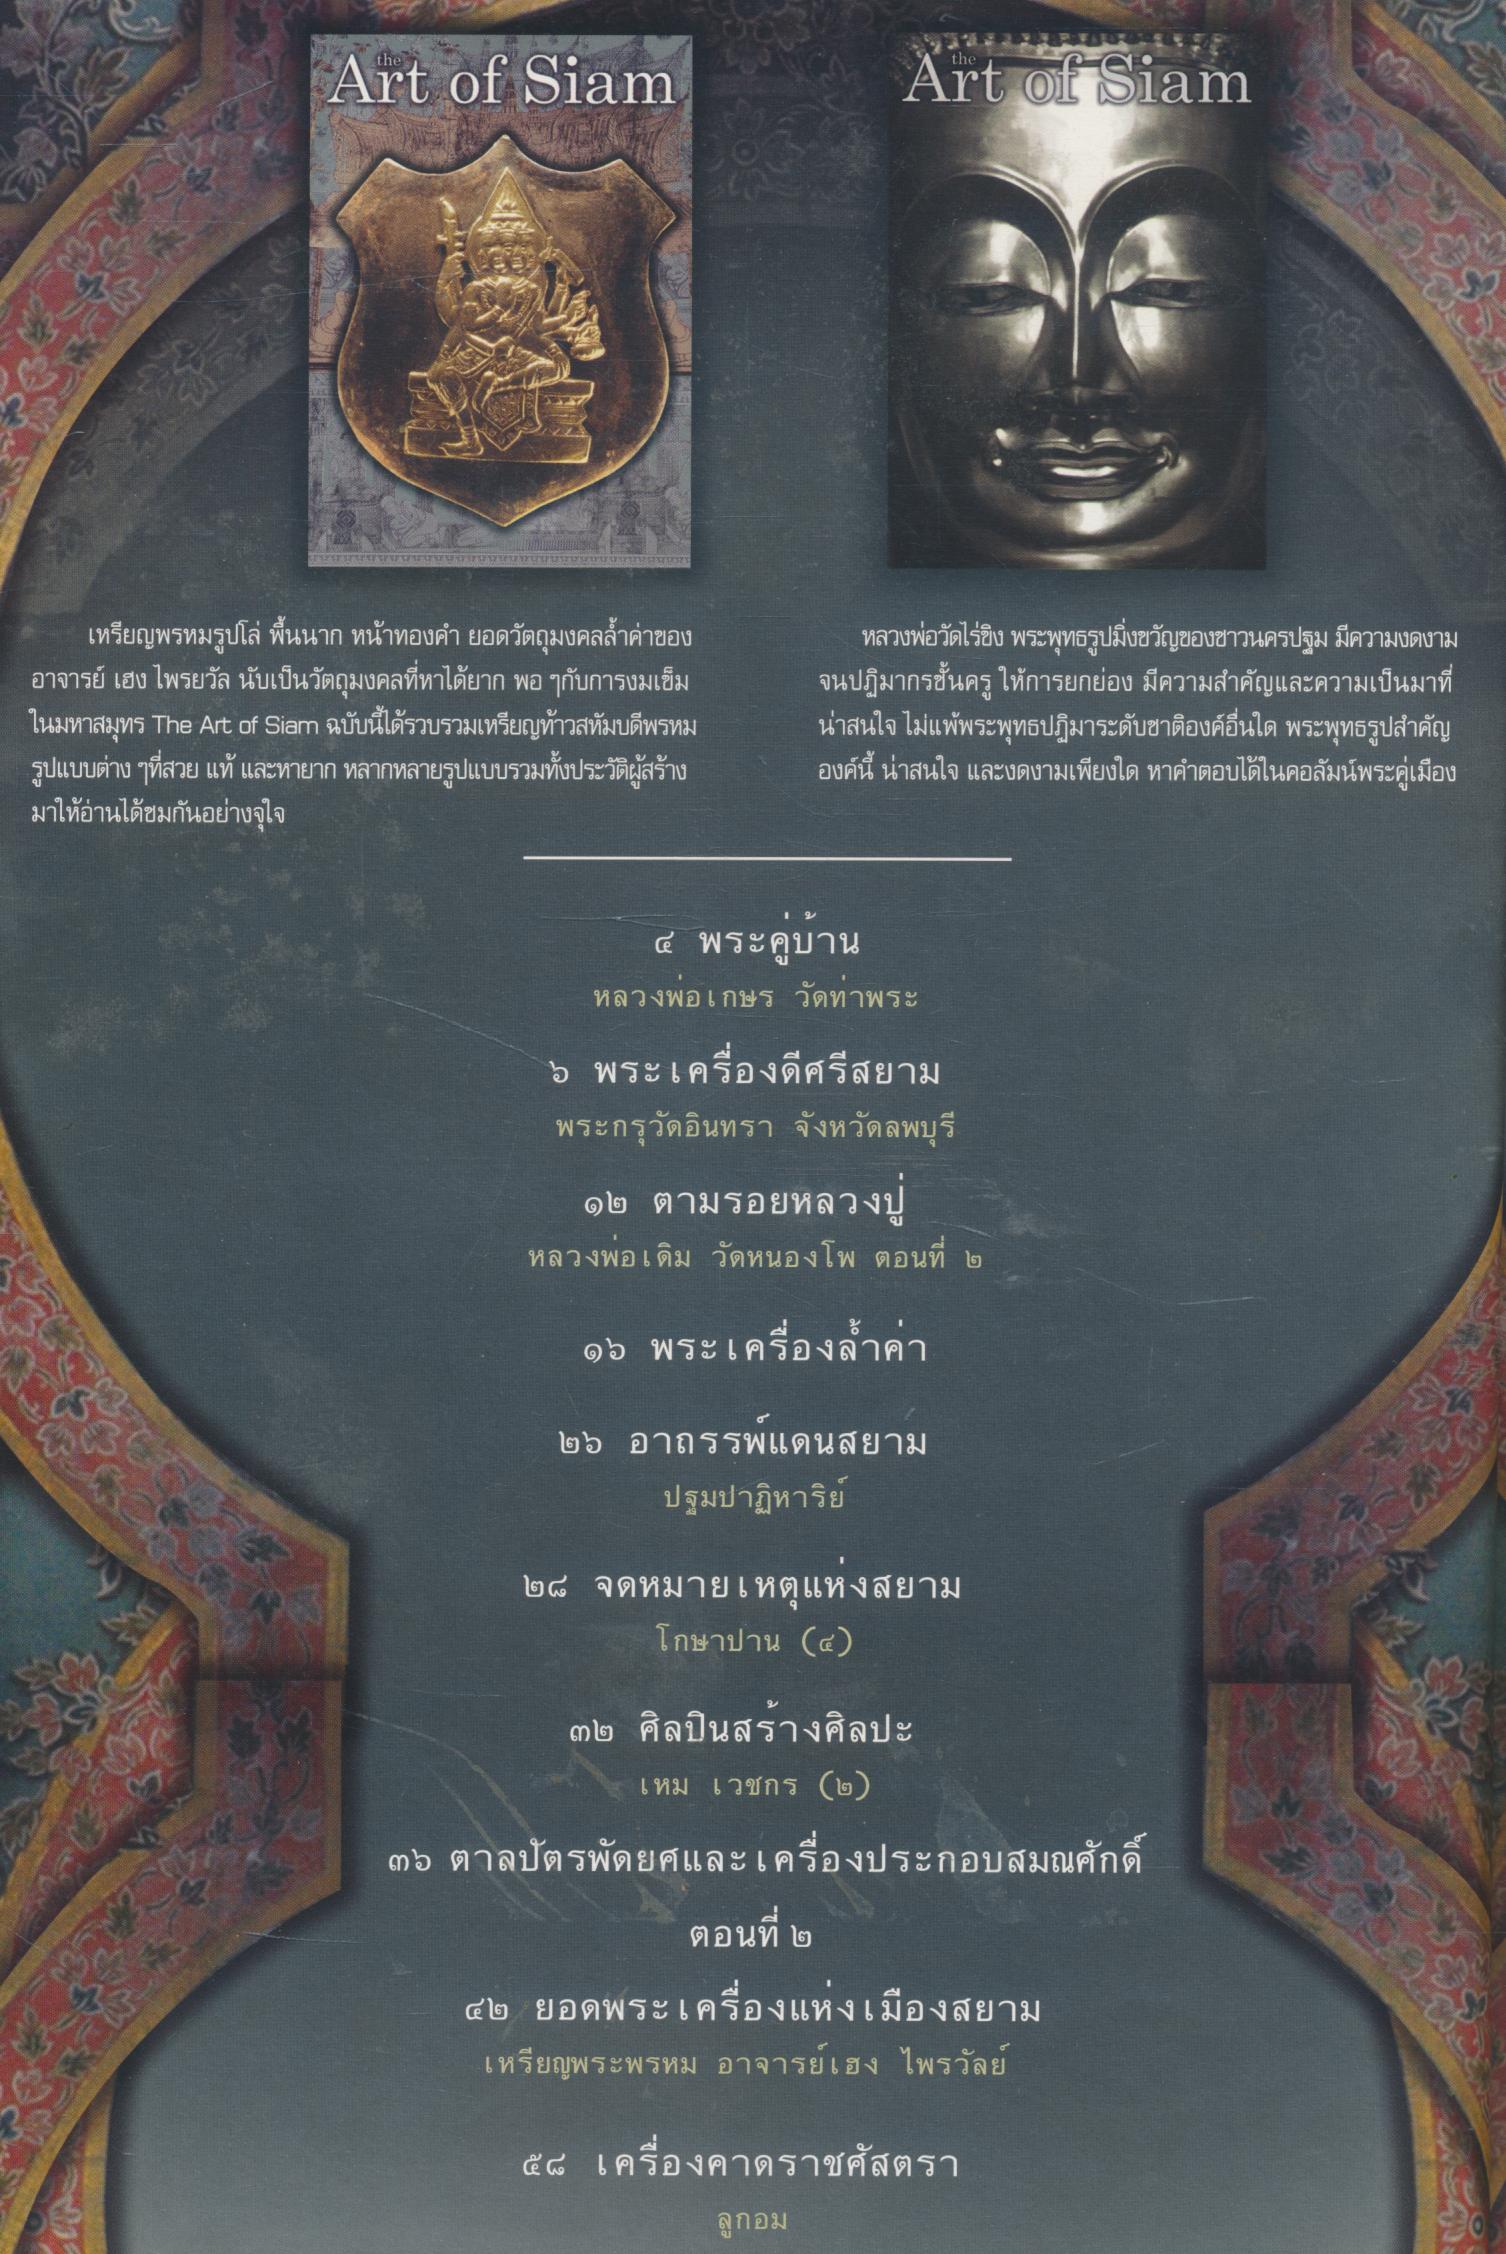 the
Art of Siam
the
Art of Siam
เหรียญพรหมรูปโล่ พื้นนาก หน้าทองคำ ยอดวัตถุมงคลล้ำค่าของ
อาจารย์ เฮง ไพรยวัล นับเป็นวัตถุมงคลที่หาได้ยาก พอ ๆกับการงมเข็ม
ในมหาสมุทร The Art of Siam ฉบับนี้ได้รวบรวมเหรียญท้าวสหัมบดีพรหม
รูปแบบต่าง ๆที่สวย แท้ และหายาก หลากหลายรูปแบบรวมทั้งประวัติผู้สร้าง
มาให้อ่านได้ชมกันอย่างจุใจ
หลวงพ่อวัดไร่ขิง พระพุทธรูปมิ่งขวัญของชาวนครปฐม มีความงดงาม
จนปฏิมากรชั้นครู ให้การยกย่อง มีความสำคัญและความเป็นมาที่
น่าสนใจ ไม่แพ้พระพุทธปฏิมาระดับชาติองค์อื่นใด พระพุทธรูปสำคัญ
องค์นี้ น่าสนใจ และงดงามเพียงใด หาคำตอบได้ในคอลัมน์พระคู่เมือง
๔ พระคู่บ้าน
หลวงพ่อเกษร วัดท่าพระ
๖ พระเครื่องดีศรีสยาม
พระกรุวัดอินทรา จังหวัดลพบุรี
๑๒ ตามรอยหลวงปู่
หลวงพ่อเดิม วัดหนองโพ ตอนที่ ๒
๑๖ พระเครื่องล้ำค่า
๒๖ อาถรรพ์แดนสยาม
ปฐมปาฏิหาริย์
๒๘ จดหมายเหตุแห่งสยาม
โกษาปาน (๔)
๓๒ ศิลปินสร้างศิลปะ
เหม เวชกร (๒)
๓๖ ตาลปัตรพัดยศและเครื่องประกอบสมณศักดิ์
ตอนที่ ๒
๔๒ ยอดพระเครื่องแห่งเมืองสยาม
เหรียญพระพรหม อาจารย์เฮง ไพรวัลย์
๕๘ เครื่องคาดราชศัสตรา
ลูกอม